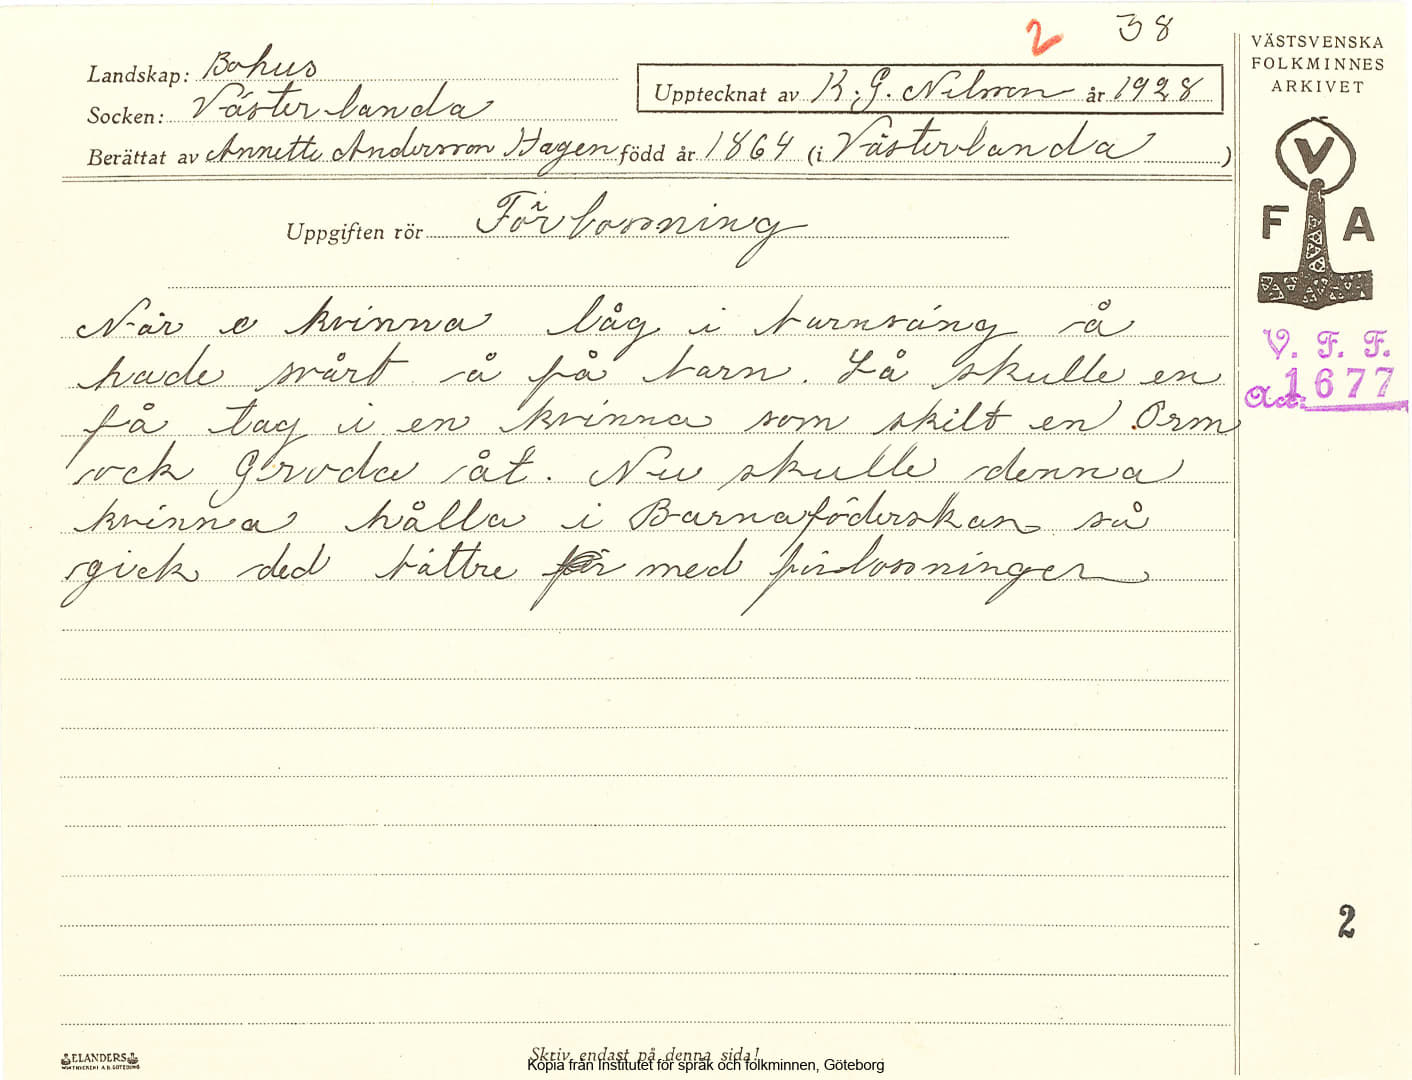 2 38
Landskap: Bohus
Socken: Västerlanda
Upptecknat av K. G. Nilsson år 1928
Berättat av Annette Andersson Hagen född år 1864 (i Västerlanda)
Uppgiften rör Förlossning
När e kvinna låg i barnsäng å
hade svårt å få barn. Så skulle en
få tag i en kvinna som skilt en Orm
ock Groda åt. Nu skulle denna
kvinna hålla i Barnaföderskan så
gick ded bättre med förlossningen
VÄSTSVENSKA
FOLKMINNES
ARKIVET
V
F A
V. F. F.
Acc. 1677
2
ELANDERS
Skriv endast på denna sida!
Kopia från Institutet för språk och folkminnen, Göteborg